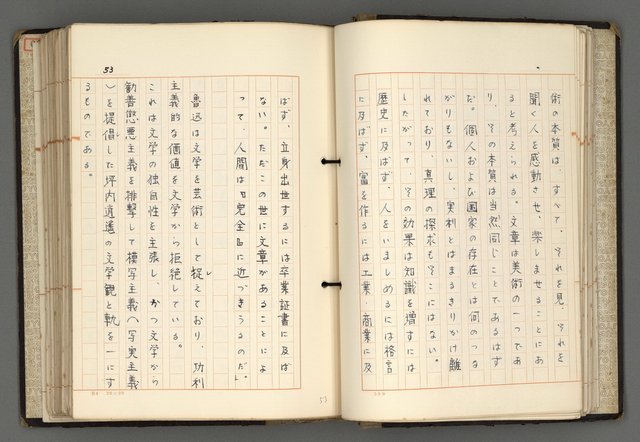 術の本質は、すべて、それを見、それを
聞く人を感動させ、楽しませることにあ
ると考えられる。文章は美術の一つであ
り、その本質は当然同じことであるはず
だ。個人および国家の存在とは何のつな
がりもないし、実利とはまるきりかけ離
れており、真理の探求もそこにはない。
したがって、その効果は知識を増すには
歴史に及ばず、人をいましめるには格言
に及ばず、富を作るには工業・商業に及
53
ばず、立身出世するには卒業証書に及ば
ない。ただこの世に文章があることによ
って、人間は『完全』に近づきうるのだ」
魯迅は文学を芸術として捉えており、功利
主義的な価値を文学から拒絶している。
これは文学の独自性を主張し、かつ文学から
勧善懲悪主義を排撃して模写主義（写実主義
）を提倡した坪内逍遙の文学観と軌を一にす
るものである。
53